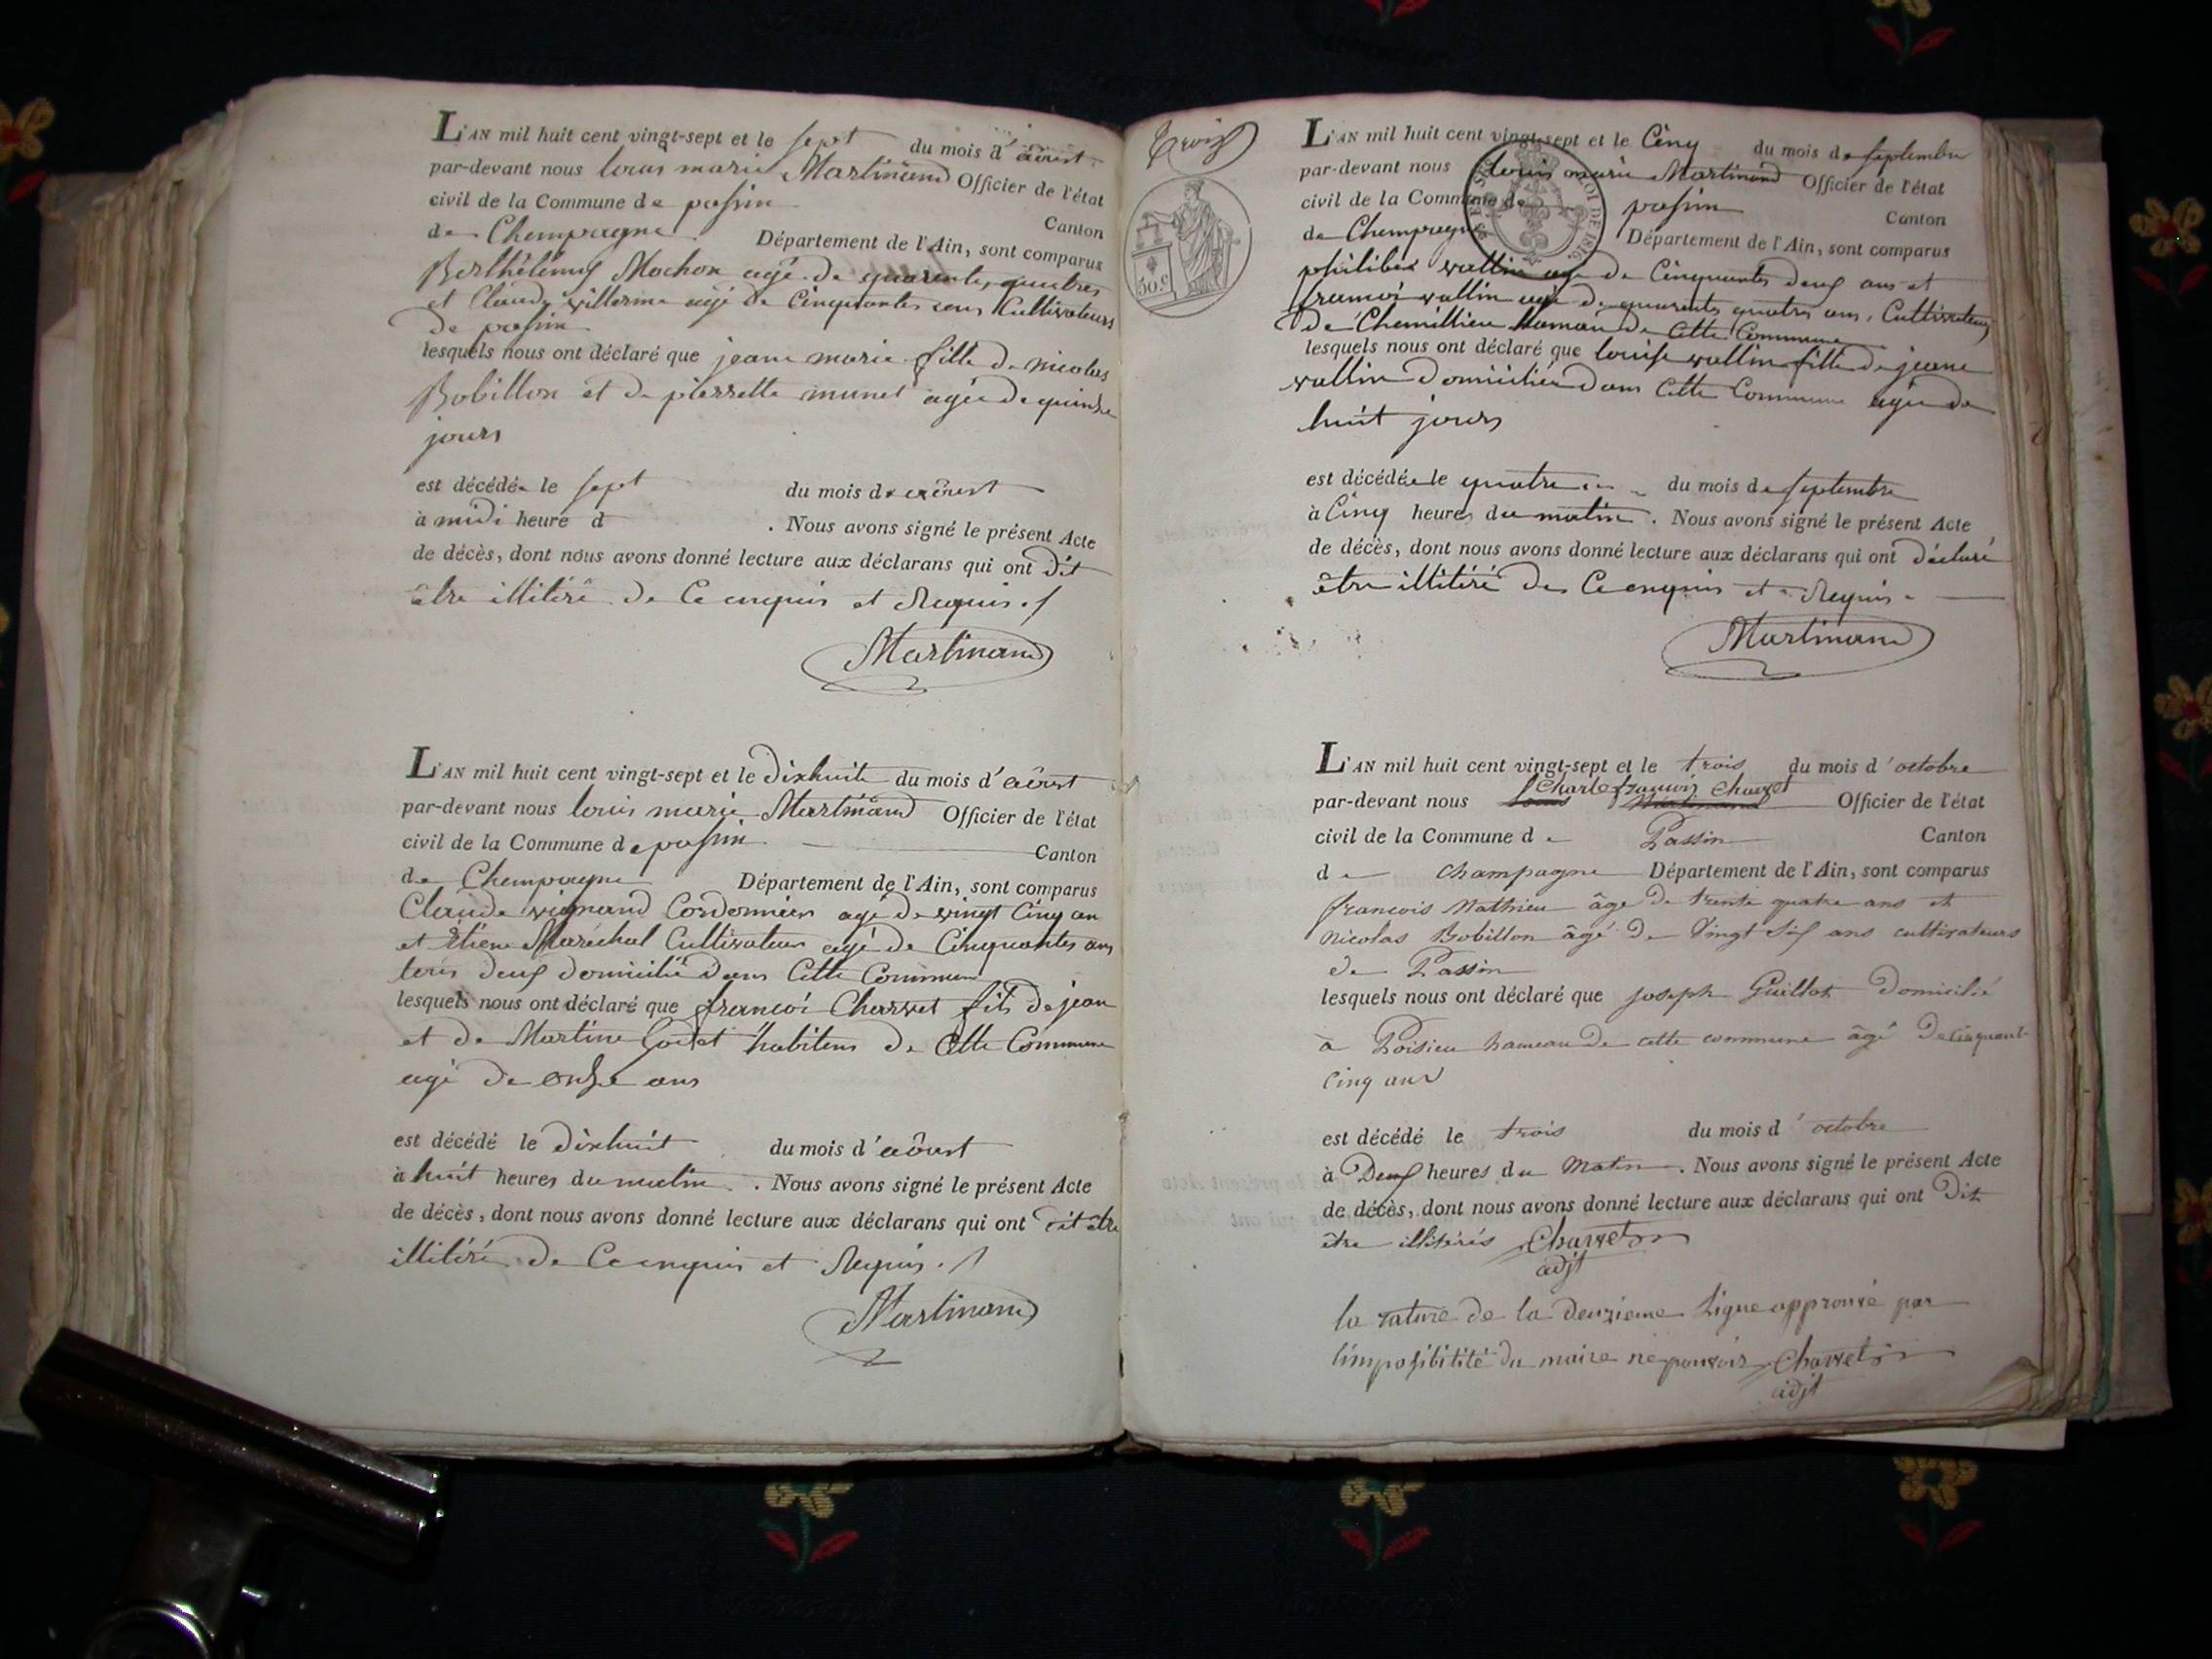 L'AN mil huit cent vingt-sept et le sept du mois d'aôust
par-devant nous louis marie Martinand Officier de l'état
civil de la Commune de passin Canton
de Champagne Département de l'Ain, sont comparus
Berthélémy Mochon agé de quarentes quatres
et Claude villerme agé de Cinquantes ans Cultivateurs
de passin
lesquels nous ont déclaré que jeane marie fille de nicolas
Bobillon et de pierrette munet agée de quinze
jours
est décédée le sept du mois de aôust
à midi heure d . Nous avons signé le présent Acte
de décès, dont nous avons donné lecture aux déclarans qui ont dit
être illitéré de Ce enquis et Requis ./
Martinand
L'AN mil huit cent vingt-sept et le dixhuite du mois d'aôust
par-devant nous louis marie Martinand Officier de l'état
civil de la Commune de passin Canton
de Champagne Département de l'Ain, sont comparus
Claude vignand Cordonnier agé de vingt Cinq an
et Etiene Maréchal Cultivateur agé de Cinquantes ans
tous deux domicilié dans Cette Commune
lesquels nous ont déclaré que francoi Charvet fils de jean
et de Martine Godet habitens de Cette Commune
agé de onze ans
est décédé le dixhuit du mois d'aôust
à huit heures du matin . Nous avons signé le présent Acte
de décès, dont nous avons donné lecture aux déclarans qui ont dit être
illitéré de Ce enquis et Requis ./
Martinand
Trois
50 c
L'AN mil huit cent vingt-sept et le Cinq du mois de septembre
par-devant nous louis marie Martinand Officier de l'état
civil de la Commune de passin Canton
LOI DE 1816
de Champagne Département de l'Ain, sont comparus
philiber vallin age de Cinquantes deux ans et
francoi vallin agé de quarente quatres ans, Cultivateurs
de Chemillieu hamau de Cette Commune
lesquels nous ont déclaré que louise vallin fille de jeane
vallin domiciliée dans Cette Commune agée de
huit jours
est décédée le quatre du mois de septembre
à Cinq heures du matin . Nous avons signé le présent Acte
de décès, dont nous avons donné lecture aux déclarans qui ont déclaré
être illitéré de Ce enquis et Requis.
Martinand
L'AN mil huit cent vingt-sept et le trois du mois d'octobre
Charle francois Charvet
par-devant nous Louis Martinand Officier de l'état
civil de la Commune de Passin Canton
de Champagne Département de l'Ain, sont comparus
francois Mathieu âge de trente quatre ans et
nicolas Bobillon âgé de Vingt Six ans cultivateurs
de Passin
lesquels nous ont déclaré que joseph Guillot Domicilié
à Poisieu hameau de cette commune âgé de Cinquant-
Cinq ans
est décédé le trois du mois d'octobre
à Deux heures du Matin . Nous avons signé le présent Acte
de décès, dont nous avons donné lecture aux déclarans qui ont Dit
être illitérés Charvet
adjt
la rature de la deuxieme Ligne approuvé par
l'impossibilité du maire ne pouvoir Charvet
adjt